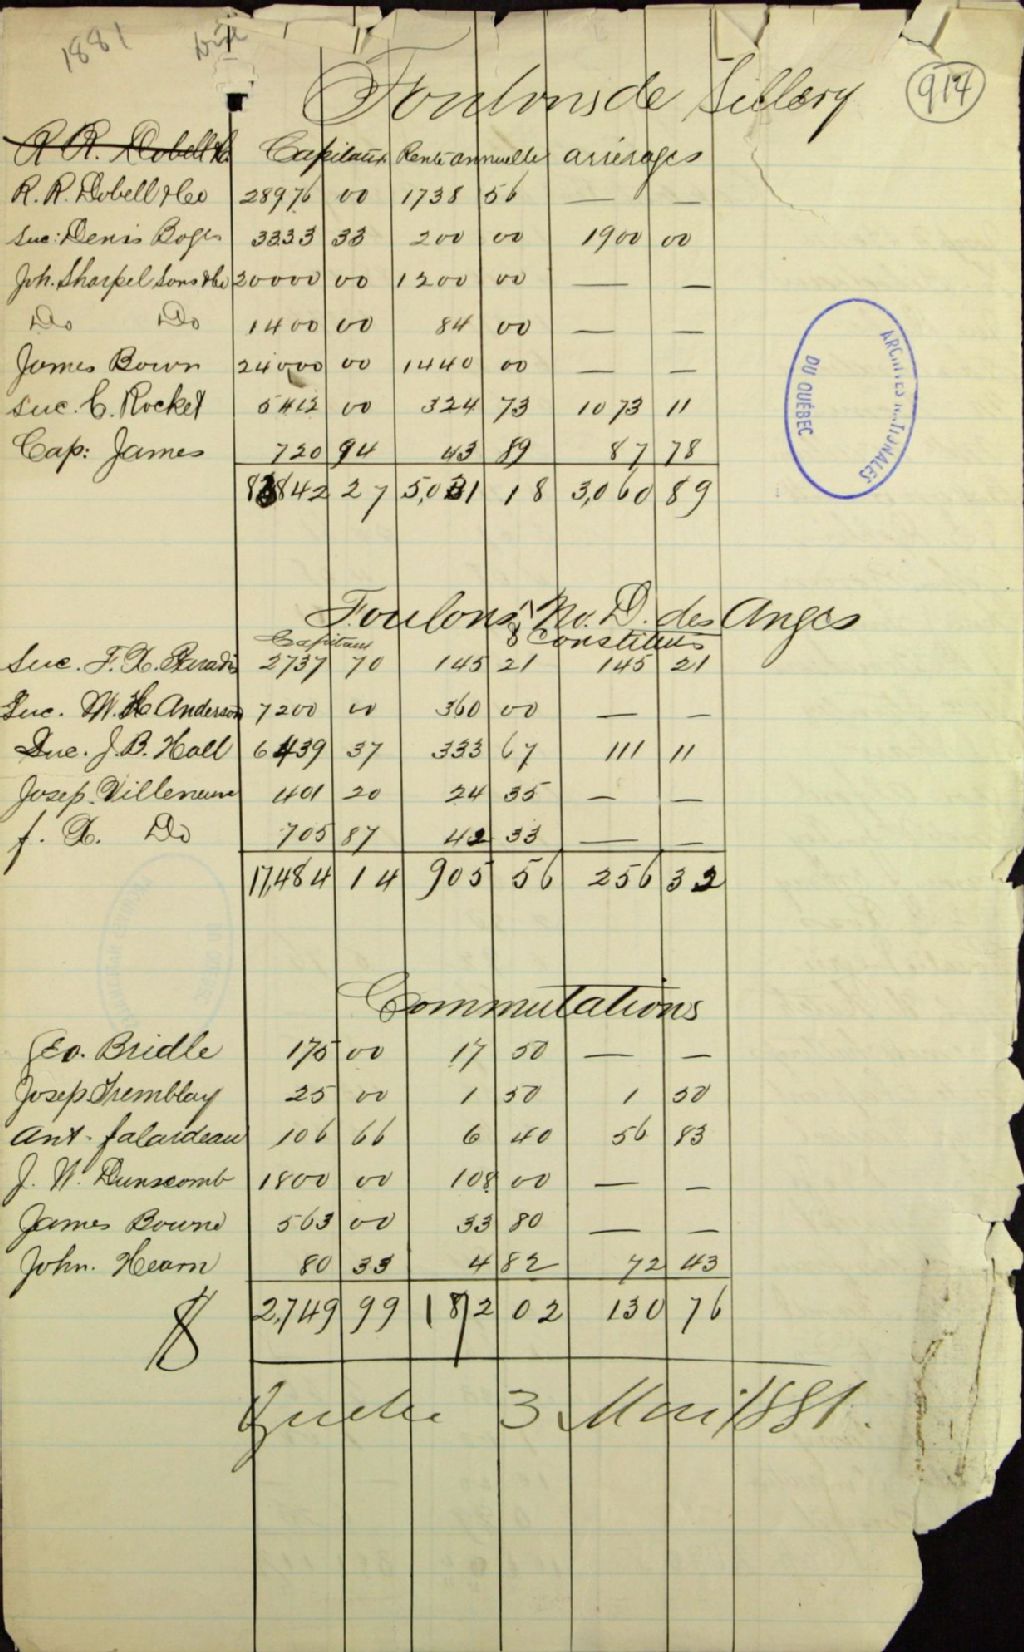 1881
Foulons de Sillery
914
R. R. Dobell & Co
Capitaux Rente annuelle arrérages
R. R. Dobell & Co 28976 00 1738 56 — —
Suc: Denis Boges 3333 33 200 00 1900 00
Joh. Sharpel Sons & Co 20000 00 1200 00 — —
Do Do 1400 00 84 00 — —
James Bown 24000 00 1440 00 — —
Suc. C. Rocket 5412 00 324 73 1073 11
Cap: James 720 94 43 89 87 78
83842 27 5,031 18 3,060 89
ARCHIVES NATIONALES
DU QUÉBEC
Foulons No. D. des Anges
Capitaux & Constitués
Suc. F. X. Paradis 2737 70 145 21 145 21
Suc. W. H. Anderson 7200 00 360 00 — —
Suc. J. B. Hall 6439 37 333 67 111 11
Josep. Villeneuve 401 20 24 35 — —
f. X. Do 705 87 42 33 — —
17,484 14 905 56 256 32
Commutations
Geo. Bridle 175 00 17 50 — —
Josep Tremblay 25 00 1 50 1 50
Ant. falardeau 106 66 6 40 56 83
J. W. Dunscomb 1800 00 108 00 — —
James Bowne 563 00 33 80 — —
John. Hearn 80 33 4 82 72 43
$ 2,749 99 172 02 130 76
Quebec 3 Mai 1881.